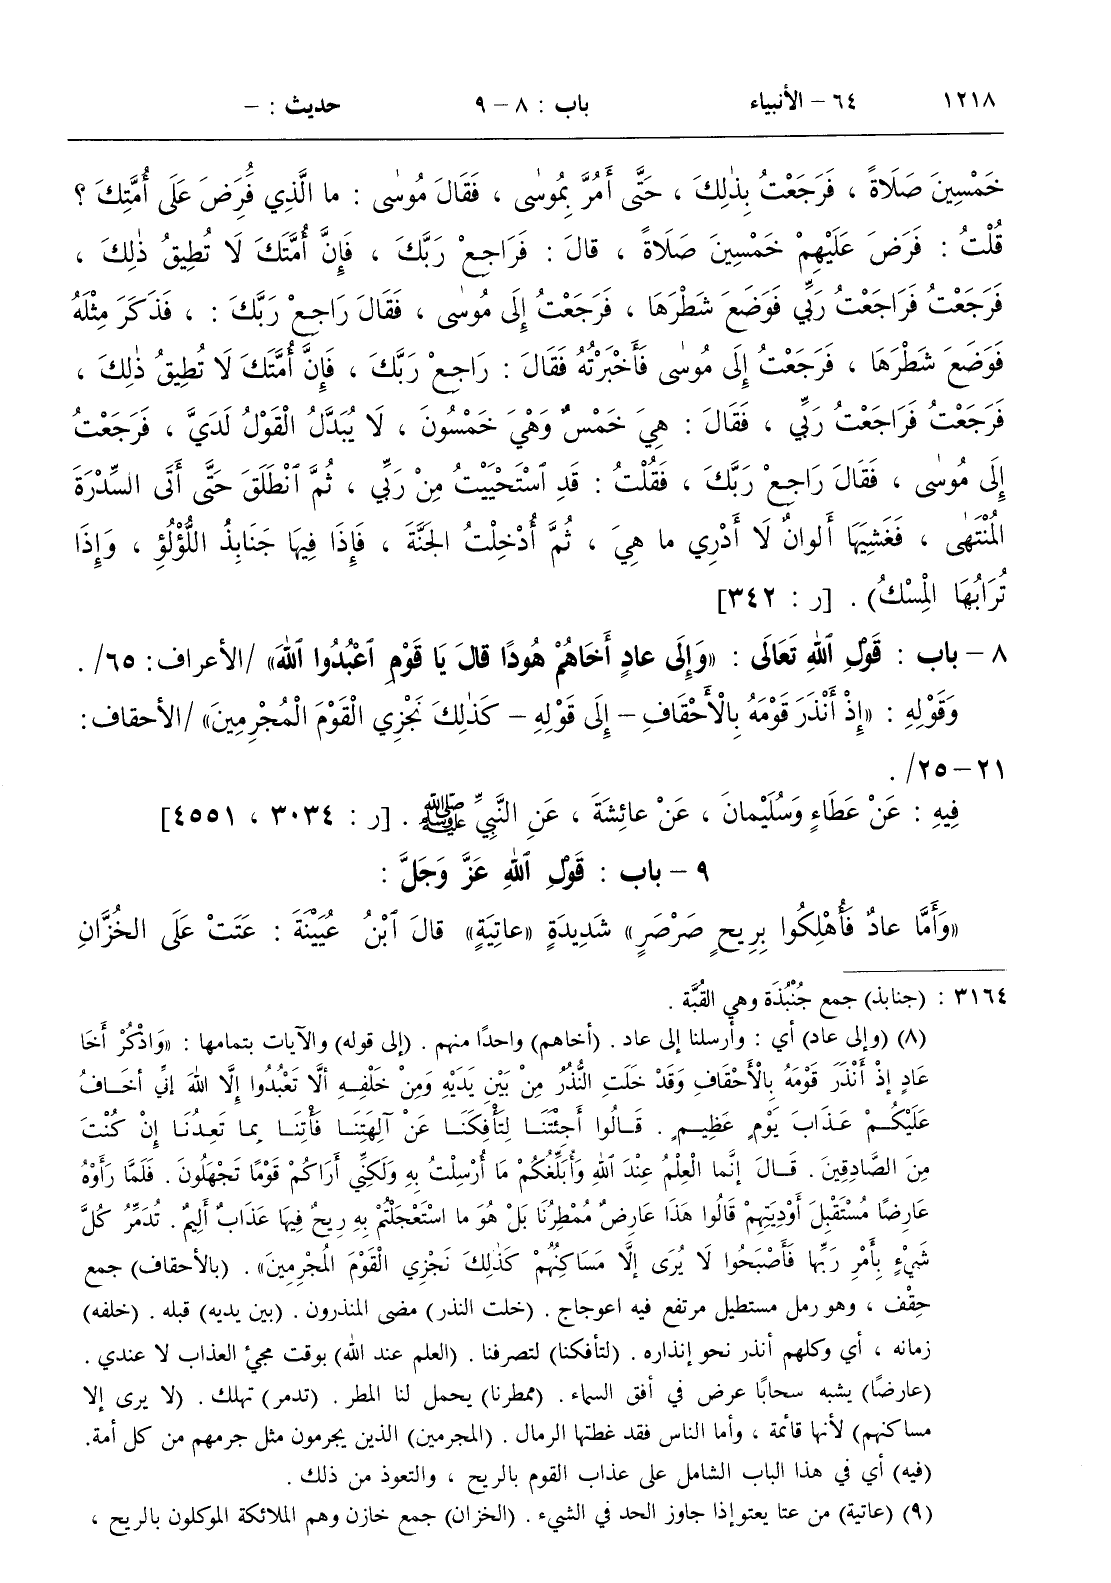 ١٢١٨ ٦٤ – الأنبياء باب : ٨ – ٩ حديث : –
خَمْسِينَ صَلَاةً ، فَرَجَعْتُ بِذٰلِكَ ، حَتَّى أَمُرَّ بِمُوسٰى ، فَقَالَ مُوسٰى : ما الَّذِي فُرِضَ عَلَى أُمَّتِكَ ؟
قُلْتُ : فَرَضَ عَلَيْهِمْ خَمْسِينَ صَلَاةً ، قالَ : فَرَاجِعْ رَبَّكَ ، فَإِنَّ أُمَّتَكَ لَا تُطِيقُ ذٰلِكَ ،
فَرَجَعْتُ فَرَاجَعْتُ رَبِّي فَوَضَعَ شَطْرَهَا ، فَرَجَعْتُ إِلَى مُوسٰى ، فَقَالَ رَاجِعْ رَبَّكَ : ، فَذَكَرَ مِثْلَهُ
فَوَضَعَ شَطْرَهَا ، فَرَجَعْتُ إِلَى مُوسٰى فَأَخْبَرْتُهُ فَقَالَ : رَاجِعْ رَبَّكَ ، فَإِنَّ أُمَّتَكَ لَا تُطِيقُ ذٰلِكَ ،
فَرَجَعْتُ فَرَاجَعْتُ رَبِّي ، فَقَالَ : هِيَ خَمْسٌ وَهْيَ خَمْسُونَ ، لَا يُبَدَّلُ الْقَوْلُ لَدَيَّ ، فَرَجَعْتُ
إِلَى مُوسٰى ، فَقَالَ رَاجِعْ رَبَّكَ ، فَقُلْتُ : قَدِ ٱسْتَحْيَيْتُ مِنْ رَبِّي ، ثُمَّ ٱنْطَلَقَ حَتَّى أَتَى السِّدْرَةَ
المُنْتَهٰى ، فَغَشِيَهَا أَلوانٌ لَا أَدْرِي ما هِيَ ، ثُمَّ أُدْخِلْتُ الجَنَّةَ ، فَإِذَا فِيهَا جَنَابِذُ اللُّؤْلُؤِ ، وَإِذَا
تُرَابُهَا الْمِسْكُ) . [ر : ٣٤٢]
٨ – باب : قَوْلِ اللهِ تَعَالَى : «وَإِلَى عادٍ أَخَاهُمْ هُودًا قالَ يَا قَوْمِ ٱعْبُدُوا ٱللهَ» /الأعراف: ٦٥/ .
وَقَوْلِهِ : «إِذْ أَنْذَرَ قَوْمَهُ بِالْأَحْقَافِ – إِلَى قَوْلِهِ – كَذٰلِكَ نَجْزِي الْقَوْمَ الْمُجْرِمِينَ» /الأحقاف:
٢١–٢٥/ .
فِيهِ : عَنْ عَطَاءٍ وَسُلَيْمانَ ، عَنْ عائِشَةَ ، عَنِ النَّبِيِّ ﷺ . [ر : ٣٠٣٤ ، ٤٥٥١]
٩ – باب : قَوْلِ ٱللهِ عَزَّ وَجَلَّ :
«وَأَمَّا عادٌ فَأُهْلِكُوا بِرِيحٍ صَرْصَرٍ» شَدِيدَةٍ «عاتِيَةٍ» قالَ ٱبْنُ عُيَيْنَةَ : عَتَتْ عَلَى الخُزَّانِ
٣١٦٤ : (جنابذ) جمع جُنْبُذَة وهي القُبَّة .
(٨) (وإلى عاد) أي : وأرسلنا إلى عاد . (أخاهم) واحدًا منهم . (إلى قوله) والآيات بتمامها : «وَاذْكُرْ أَخَا
عَادٍ إذْ أَنْذَرَ قَوْمَهُ بِالْأَحْقَافِ وَقَدْ خَلَتِ النُّذُرُ مِنْ بَيْنِ يَدَيْهِ وَمِنْ خَلْفِهِ أَلَّا تَعْبُدُوا إِلَّا اللهَ إنِّي أخَافُ
عَلَيْكُمْ عَذَابَ يَوْمٍ عَظِيمٍ . قَالُوا أَجِئْتَنَا لِتَأْفِكَنَا عَنْ آلِهَتِنَا فَأْتِنَا بِمَا تَعِدُنَا إِنْ كُنْتَ
مِنَ الصَّادِقِينَ . قَالَ إنَّما الْعِلْمُ عِنْدَ اللهِ وَأُبَلِّغُكُمْ مَا أُرْسِلْتُ بِهِ وَلَكِنِّي أَرَاكُمْ قَوْمًا تَجْهَلُونَ . فَلَمَّا رَأَوْهُ
عَارِضًا مُسْتَقْبِلَ أَوْدِيَتِهِمْ قَالُوا هَذَا عَارِضٌ مُمْطِرُنَا بَلْ هُوَ ما اسْتَعْجَلْتُمْ بِهِ رِيحٌ فِيهَا عَذَابٌ أَلِيمٌ . تُدَمِّرُ كُلَّ
شَيْءٍ بِأَمْرِ رَبِّها فَأَصْبَحُوا لَا يُرَى إلَّا مَسَاكِنُهُمْ كَذَلِكَ نَجْزِي الْقَوْمَ الْمُجْرِمِينَ» . (بالأحقاف) جمع
حِقْف ، وهو رمل مستطيل مرتفع فيه اعوجاج . (خلت النذر) مضى المنذرون . (بين يديه) قبله . (خلفه)
زمانه ، أي وكلهم أنذر نحو إنذاره . (لتأفكنا) لتصرفنا . (العلم عند الله) بوقت مجيء العذاب لا عندي .
(عارضًا) يشبه سحابًا عرض في أفق السماء . (ممطرنا) يحمل لنا المطر . (تدمر) تهلك . (لا يرى إلا
مساكنهم) لأنها قائمة ، وأما الناس فقد غطتها الرمال . (المجرمين) الذين يجرمون مثل جرمهم من كل أمة.
(فيه) أي في هذا الباب الشامل على عذاب القوم بالريح ، والتعوذ من ذلك .
(٩) (عاتية) من عتا يعتو إذا جاوز الحد في الشيء . (الخزان) جمع خازن وهم الملائكة الموكلون بالريح ،